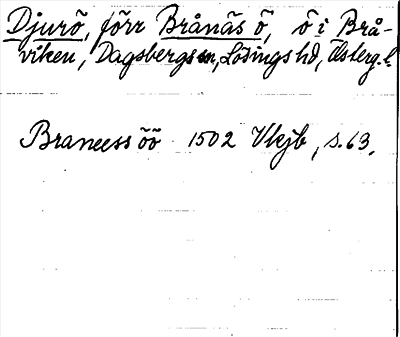 Djurö, förr Brånäs ö, ö i Brå-
viken, Dagsbergs sn, Lösings hd, Östergötl.
Braneess öö 1502 Vkjb, s. 63.